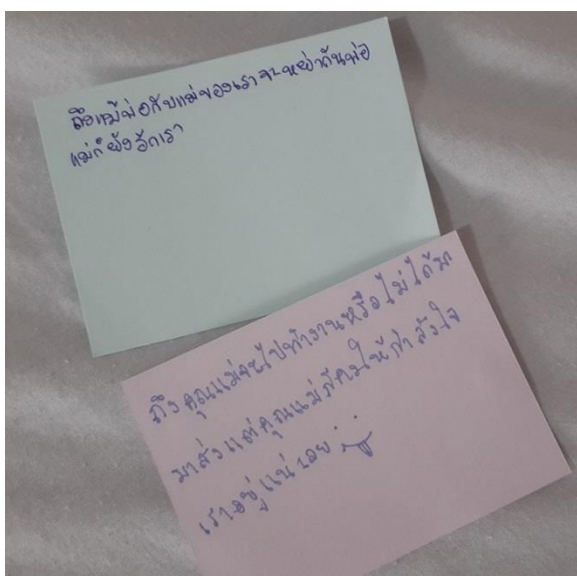 ถึงแม้พ่อกับแม่ของเราจะหย่ากันพ่อ
แม่ก็ยังรักเรา
ถึงคุณแม่จะไปทำงานหรือไม่ได้มา
มาส่งแต่คุณแม่ก็คงให้กำลังใจ
เราอยู่แน่เลย